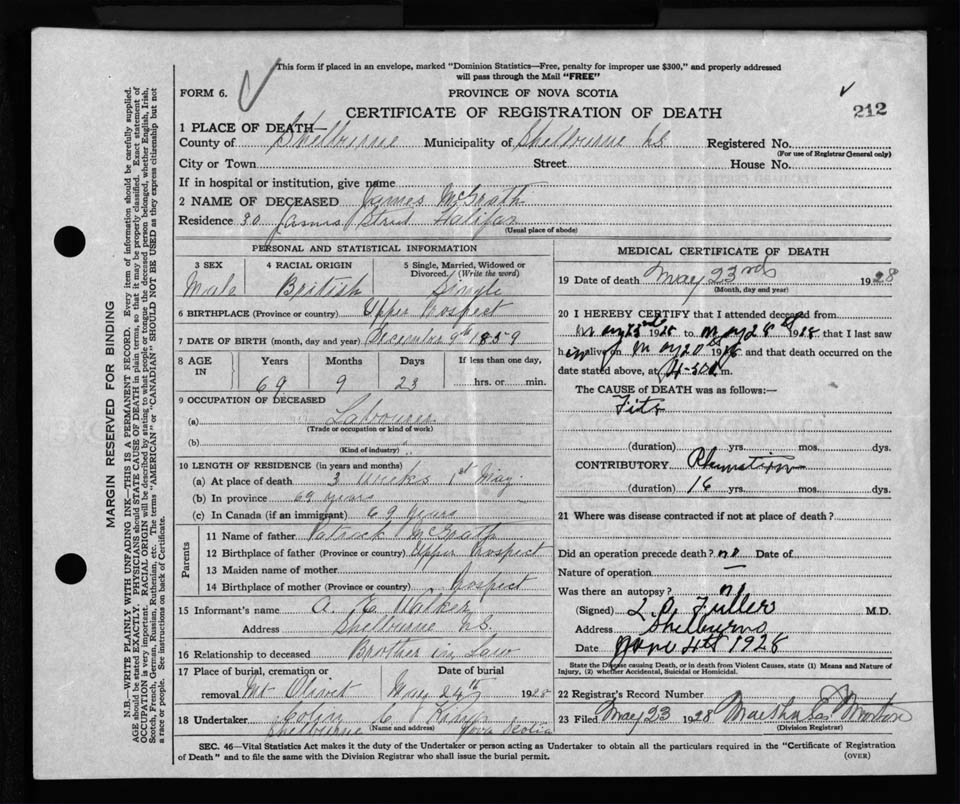 This form if placed in an envelope, marked "Dominion Statistics—Free, penalty for improper use $300," and properly addressed
will pass through the Mail "FREE"
FORM 6. PROVINCE OF NOVA SCOTIA
212
CERTIFICATE OF REGISTRATION OF DEATH
1 PLACE OF DEATH—
County of Shelburne Municipality of Shelburne NS Registered No.
(For use of Registrar General only)
City or Town Street House No.
If in hospital or institution, give name
2 NAME OF DECEASED James McGrath
Residence 30 James Street Halifax
(Usual place of abode)
PERSONAL AND STATISTICAL INFORMATION
3 SEX 4 RACIAL ORIGIN 5 Single, Married, Widowed or
Divorced. (Write the word)
Male British Single
6 BIRTHPLACE (Province or country) Upper Prospect
7 DATE OF BIRTH (month, day and year) December 9th 1859
8 AGE IN Years Months Days If less than one day,
69 9 23 hrs. or min.
9 OCCUPATION OF DECEASED
(a) Labourer
(Trade or occupation or kind of work)
(b)
(Kind of industry)
10 LENGTH OF RESIDENCE (in years and months)
(a) At place of death 3 weeks 1st May.
(b) In province 69 years
(c) In Canada (if an immigrant) 69 years
Parents
11 Name of father Patrick McGrath
12 Birthplace of father (Province or country) Upper Prospect
13 Maiden name of mother
14 Birthplace of mother (Province or country) Prospect
15 Informant's name A. E. Walker
Address Shelburne NS.
16 Relationship to deceased Brother in Law
17 Place of burial, cremation or Date of burial
removal Mt Olivet May 24th 1928
18 Undertaker Colin C
Shelburne (Name and address) Nova Scotia
MEDICAL CERTIFICATE OF DEATH
19 Date of death May 23rd 1928
(Month, day and year)
20 I HEREBY CERTIFY that I attended deceased from
May 1928 to May 1928 that I last saw
him alive on May 20 1928 and that death occurred on
date stated above, at m.
The CAUSE of DEATH was as follows:—
Fits
(duration) yrs. mos. dys.
CONTRIBUTORY
(duration) 16 yrs. mos. dys.
21 Where was disease contracted if not at place of death?
Did an operation precede death? no Date of
Nature of operation —
Was there an autopsy? no
(Signed) L. O. Fuller M.D.
Address Shelburne
Date June 4th 1928
State the Disease causing Death, or in death from Violent Causes, state (1) Means and Nature of
Injury, (2) whether Accidental, Suicidal or Homicidal.
22 Registrar's Record Number
23 Filed May 23 1928 Morton
(Division Registrar)
SEC. 46—Vital Statistics Act makes it the duty of the Undertaker or person acting as Undertaker to obtain all the particulars required in the "Certificate of Registration
of Death" and to file the same with the Division Registrar who shall issue the burial permit. (OVER)
MARGIN RESERVED FOR BINDING
N.B.—WRITE PLAINLY WITH UNFADING INK—THIS IS A PERMANENT RECORD. Every item of information should be carefully supplied.
AGE should be stated EXACTLY. PHYSICIANS should STATE CAUSE OF DEATH in plain terms, so that it may be properly classified. Exact statement of
OCCUPATION is very important. RACIAL ORIGIN will be described by stating to what people or tongue the deceased person belonged, whether English, Irish,
Scotch, French, German, Russian, Ruthenian, etc. The terms "AMERICAN" or "CANADIAN" SHOULD NOT BE USED as they express citizenship but not
a race or people. See instructions on back of Certificate.